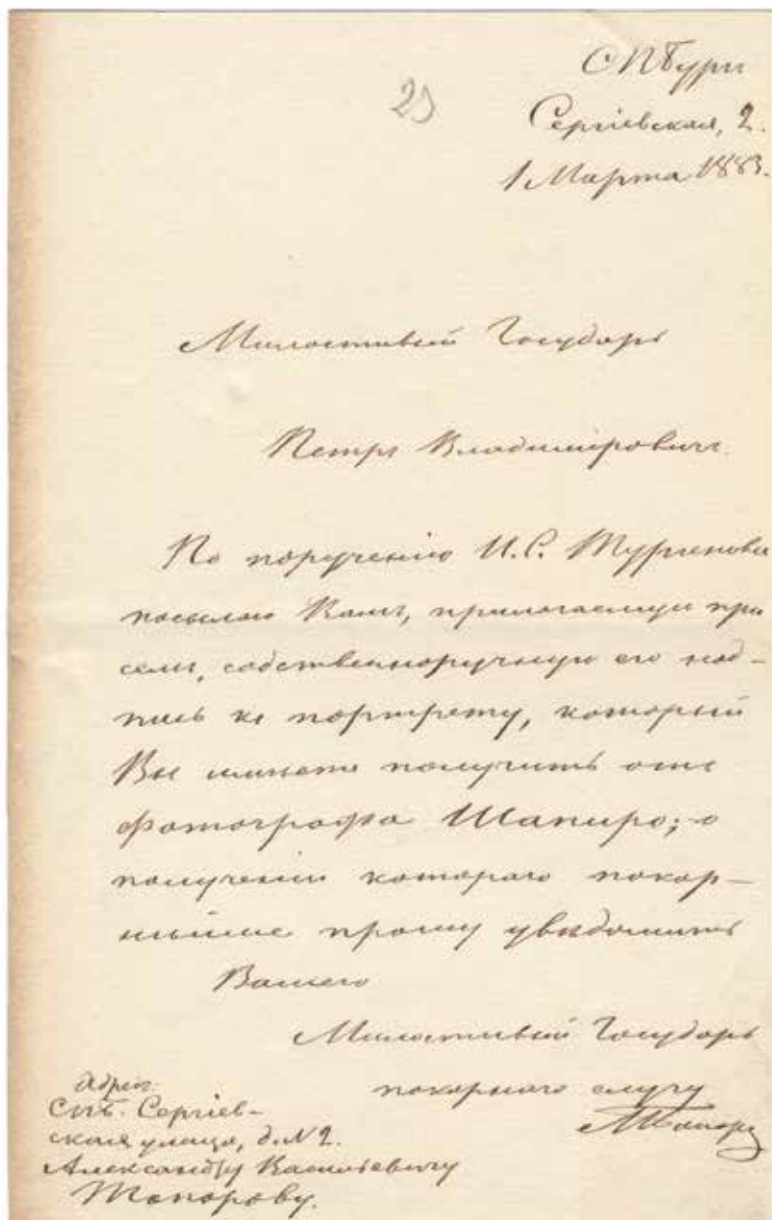 23
СПБургъ
Сергіевская, 2.
1 Марта 1883.
Милостивый Государь
Петръ Владиміровичъ.
По порученію И.С. Тургенева
посылаю Вамъ, прилагаемую при
семъ, собственноручную его над-
пись къ портрету, который
Вы имѣете получить отъ
фотографа Шапиро; о
полученіи котораго покор-
нѣйше прошу увѣдомить
Вашего
Милостивый Государь
покорнаго слугу
АТопоро
Адресъ:
СПБ. Сергіев-
ская улица, д. №2.
Александру Васильевичу
Топорову.